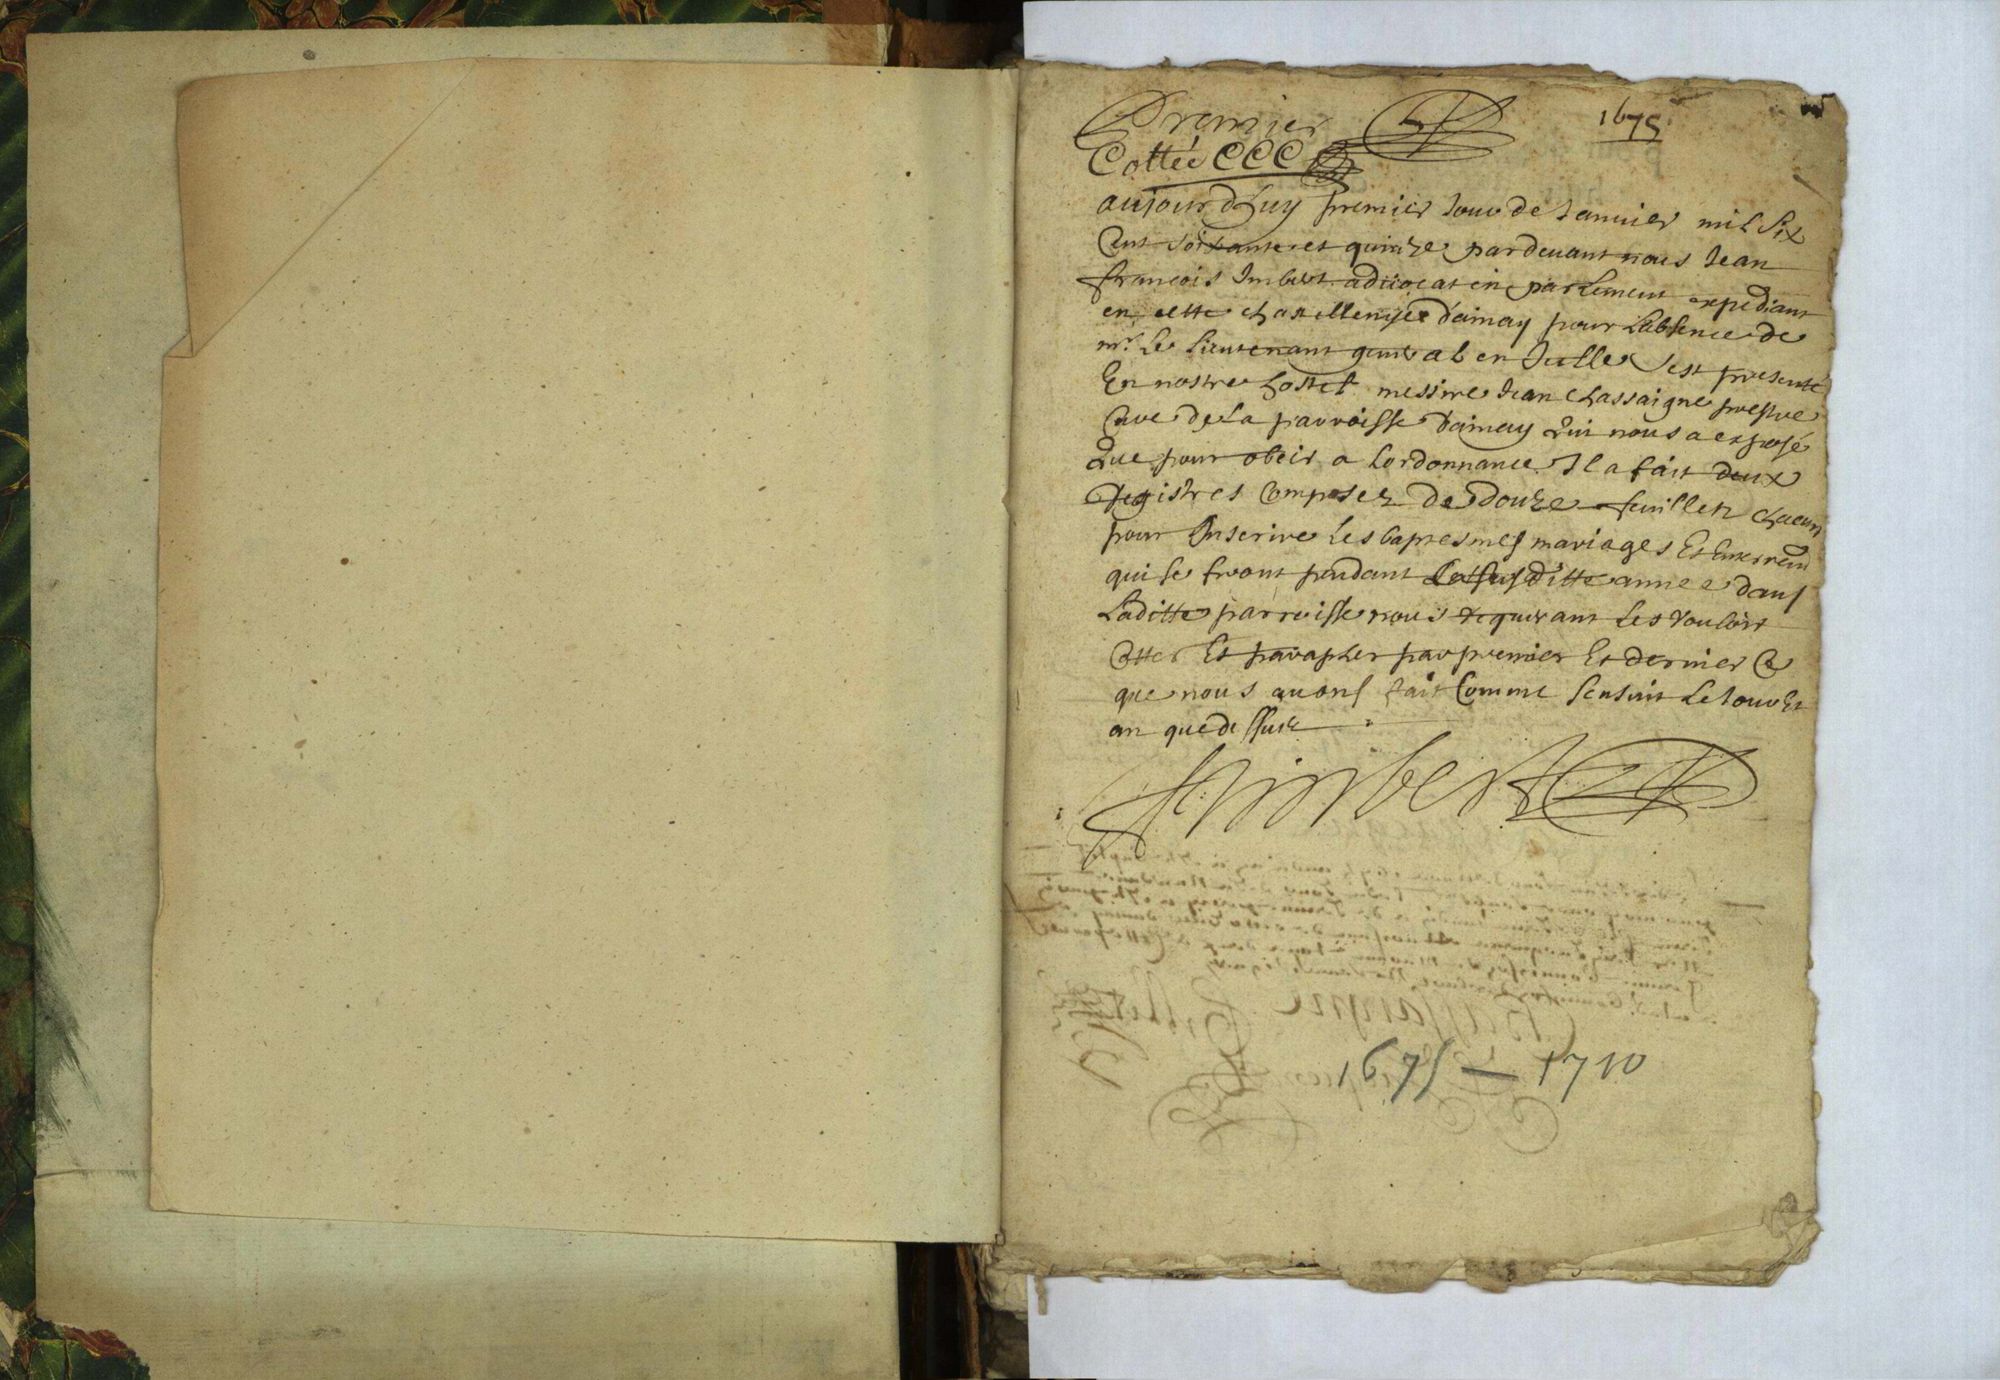 Premier
1675
Cottée CCC
aujourdhuy premier Jour de Januier mil Six
Cent soixante et quinze pardeuant nous Jean
françois Imbert aduocat en parlement expediant
en cette chastellenye d'ainay pour Labsence de
mr. Le Lieutenant general en Icelle sest presenté
En nostre hostel messire Jean chassaigne prestre
Cure de La parroisse d'ainay Qui nous a exposé
Que pour obeir a Lordonnance Il a fait deux
Registres Composez de douze feuillets chacun
pour Inscrire Les baptesmes mariages Et Enterrem
qui se feront pendant La susditte annee dans
Laditte parroisse nous requerant Les vouloir
Cotter Et parapher par premier Et dernier Ce
que nous auons fait Comme sensuit Le Jour Et
an que dessus
Imbert
1675 — 1710